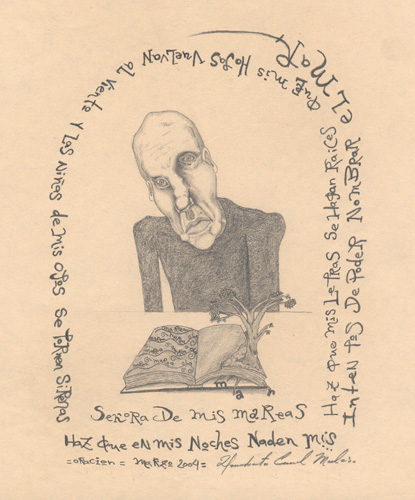 Señora De mis mareas
Haz que en mis Noches Naden mis
Intentos De Poder Nombrar
el mar
Haz que mis Letras Se Hagan Raices
que mis Hojas Vuelvan al Viento Y Los Niños de mis Ojos Se Tornen Sirenas
mar
=oracion= marzo 2004=